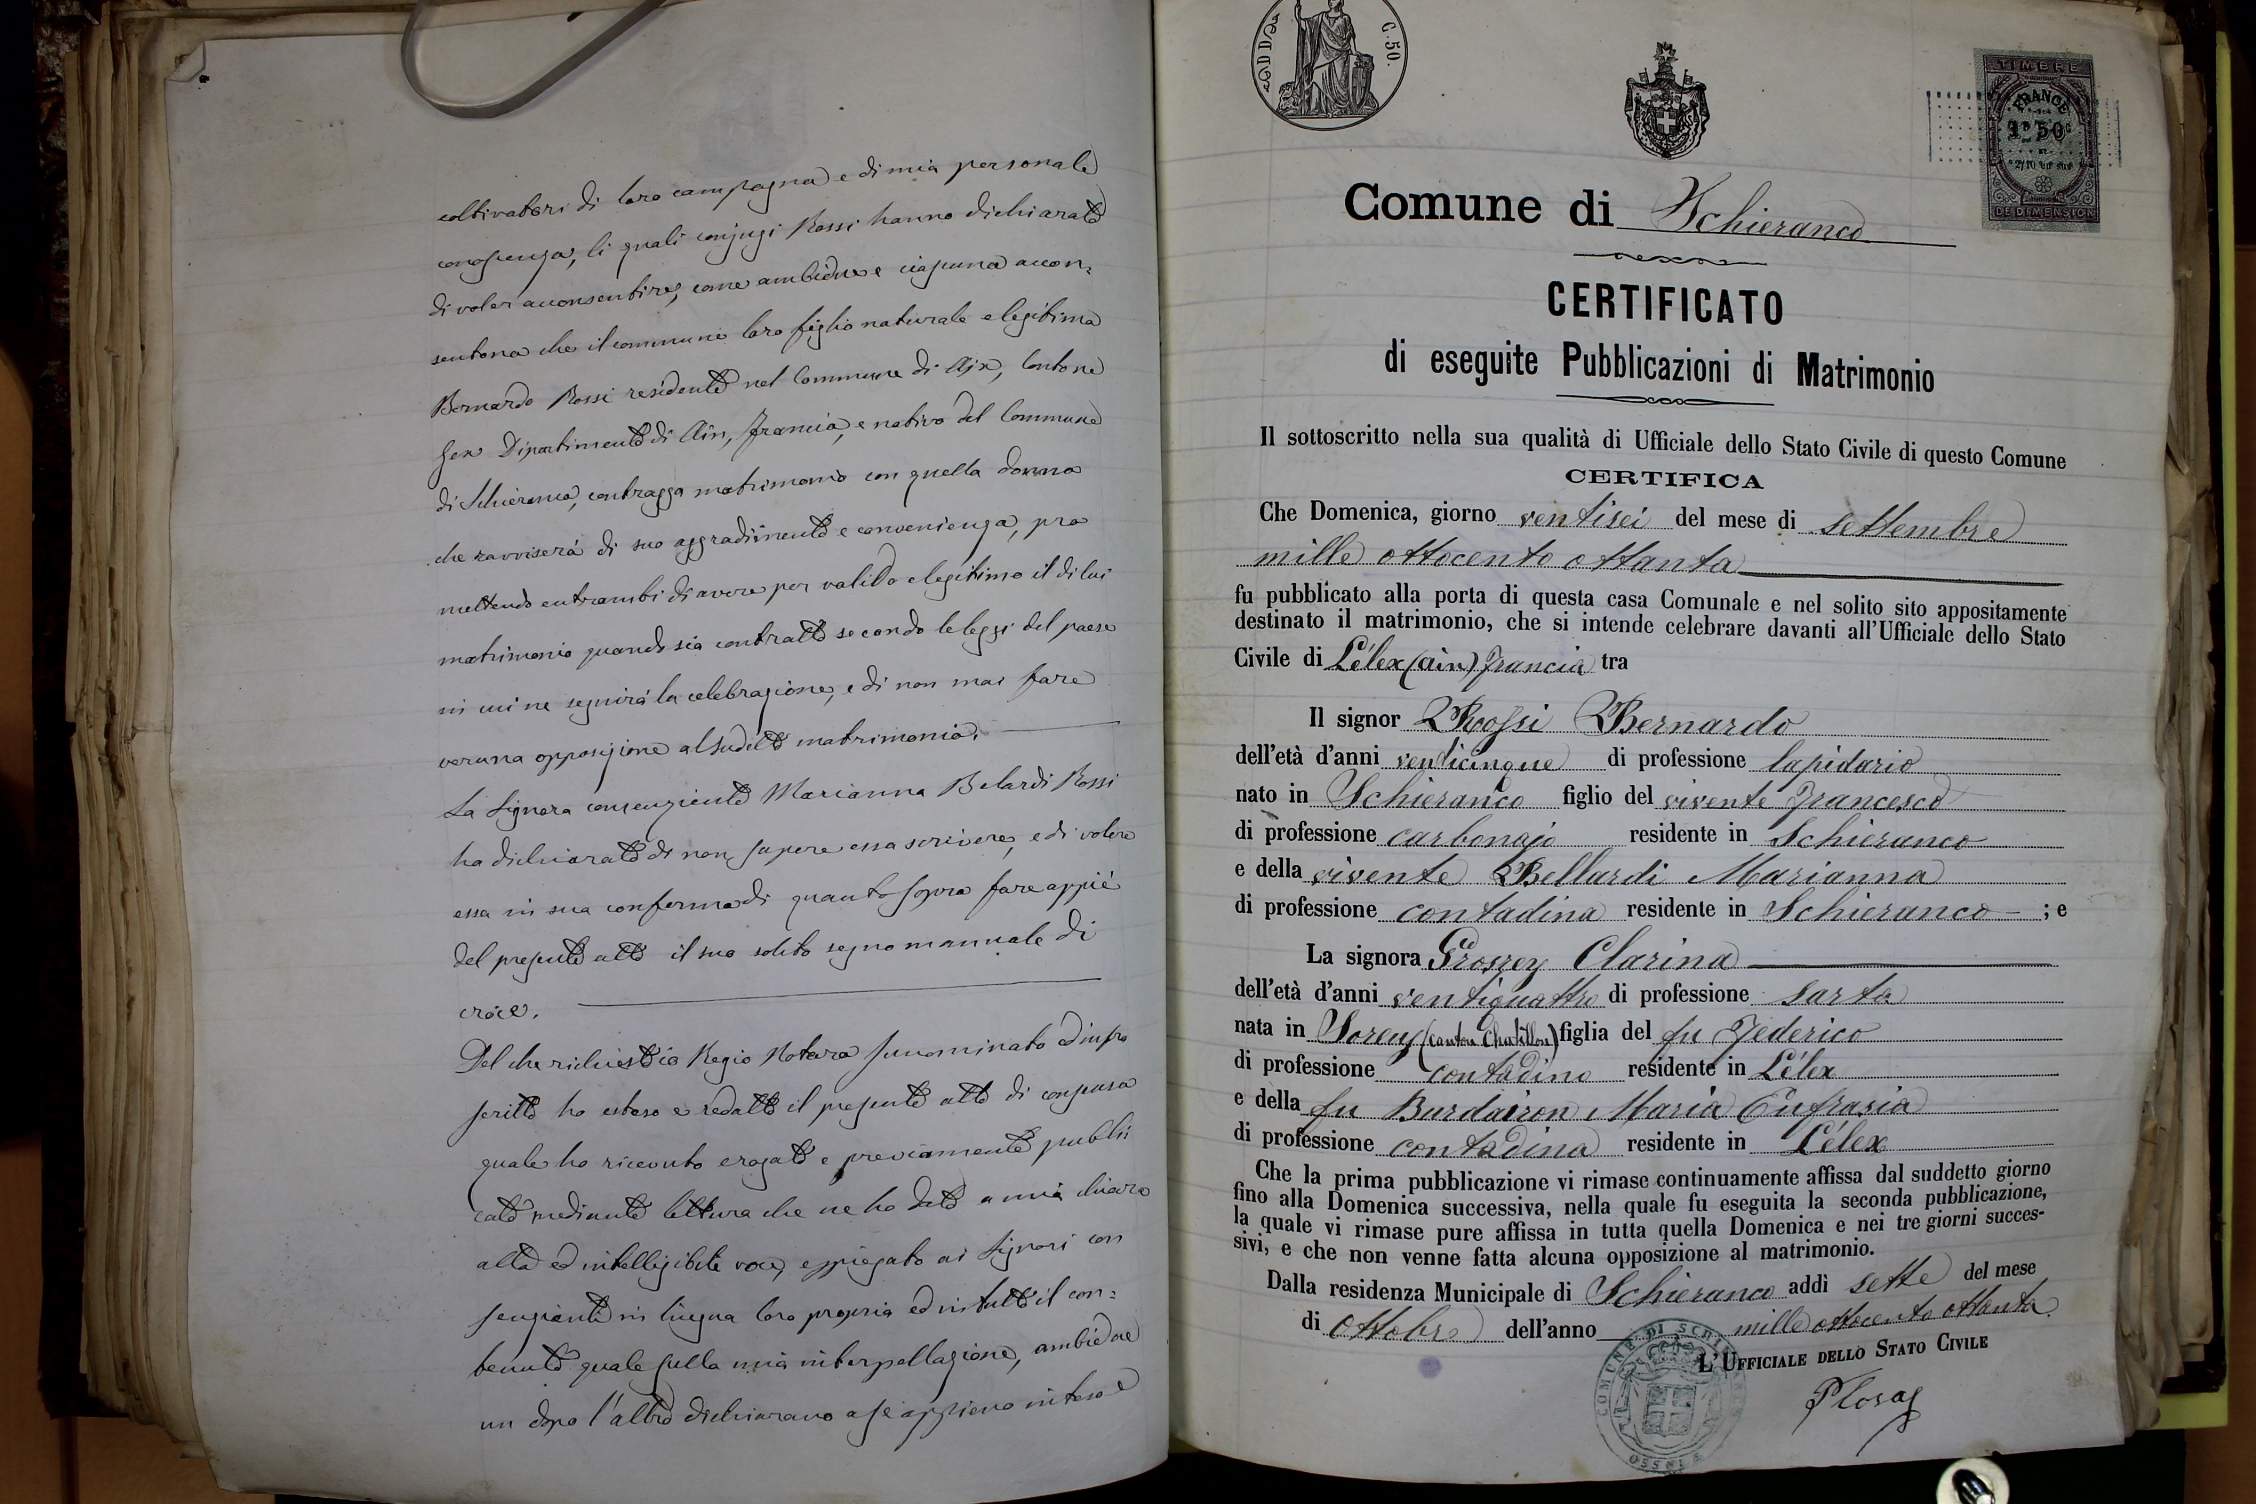 coltivatori di loro campagna e di mia personale
conoscenza, li quali conjugi Rossi hanno dichiarato
di voler acconsentire, come ambidue e ciascuna accon=
sentono che il commune loro figlio naturale e legitimo
Bernardo Rossi residente nel Commune di Ajx, Cantone
Gex Dipartimento di Ain, Francia, e nativo del Commune
di Schieranco, contragga matrimonio con quella donna
che ravviserà di suo aggradimento e convenienza, pro
mettendo entrambi di avere per valido e legitimo il di lui
matrimonio quando sia contratto secondo le leggi del paese
in cui ne seguirà la celebrazione, e di non mai fare
veruna opposizione al sudetto matrimonio.
La Signora consenziente Marianna Belardi Rossi
ha dichiarato di non sapere essa scrivere, e di volere
essa in sua conferma di quanto sopra fare appiè
del presente atto il suo solito segno manuale di
croce.
Del che richiesto io Regio Notaro sunominato ed infra
scritto ho esteso e redatto il presente atto di consenso
quale ho ricevuto erogato e previamente publi
cato mediante lettura che ne ho dato a mia chiara
alta ed intelligibile voce, e spiegato ai Signori con
senzienti in lingua loro propria ed in tutto il con=
tenuto quale sulla mia interpellazione, ambidue
un dopo l'altro dichiarano a se appieno inteso e
C. 50.
TIMBRE
FRANCE
1F 50C
DE DIMENSION
Comune di Schieranco
CERTIFICATO
di eseguite Pubblicazioni di Matrimonio
Il sottoscritto nella sua qualità di Ufficiale dello Stato Civile di questo Comune
CERTIFICA
Che Domenica, giorno ventisei del mese di settembre
mille ottocento ottanta
fu pubblicato alla porta di questa casa Comunale e nel solito sito appositamente
destinato il matrimonio, che si intende celebrare davanti all'Ufficiale dello Stato
Civile di Lélex (ain) Francia tra
Il signor Rossi Bernardo
dell'età d'anni venticinque di professione lapidario
nato in Schieranco figlio del vivente Francesco
di professione carbonajo residente in Schieranco
e della vivente Bellardi Marianna
di professione contadina residente in Schieranco ; e
La signora Grosgey Clarina
dell'età d'anni ventiquattro di professione sarta
nata in Sorey (canton Chatillon) figlia del fu Federico
di professione contadino residente in Lélex
e della fu Burdairon Maria Eufrasia
di professione contadina residente in Lélex
Che la prima pubblicazione vi rimase continuamente affissa dal suddetto giorno
fino alla Domenica successiva, nella quale fu eseguita la seconda pubblicazione,
la quale vi rimase pure affissa in tutta quella Domenica e nei tre giorni succes-
sivi, e che non venne fatta alcuna opposizione al matrimonio.
Dalla residenza Municipale di Schieranco addì sette del mese
di Ottobre dell'anno mille ottocento ottanta.
L'UFFICIALE DELLO STATO CIVILE
COMUNE DI SCHIERANCO
OSSOLA